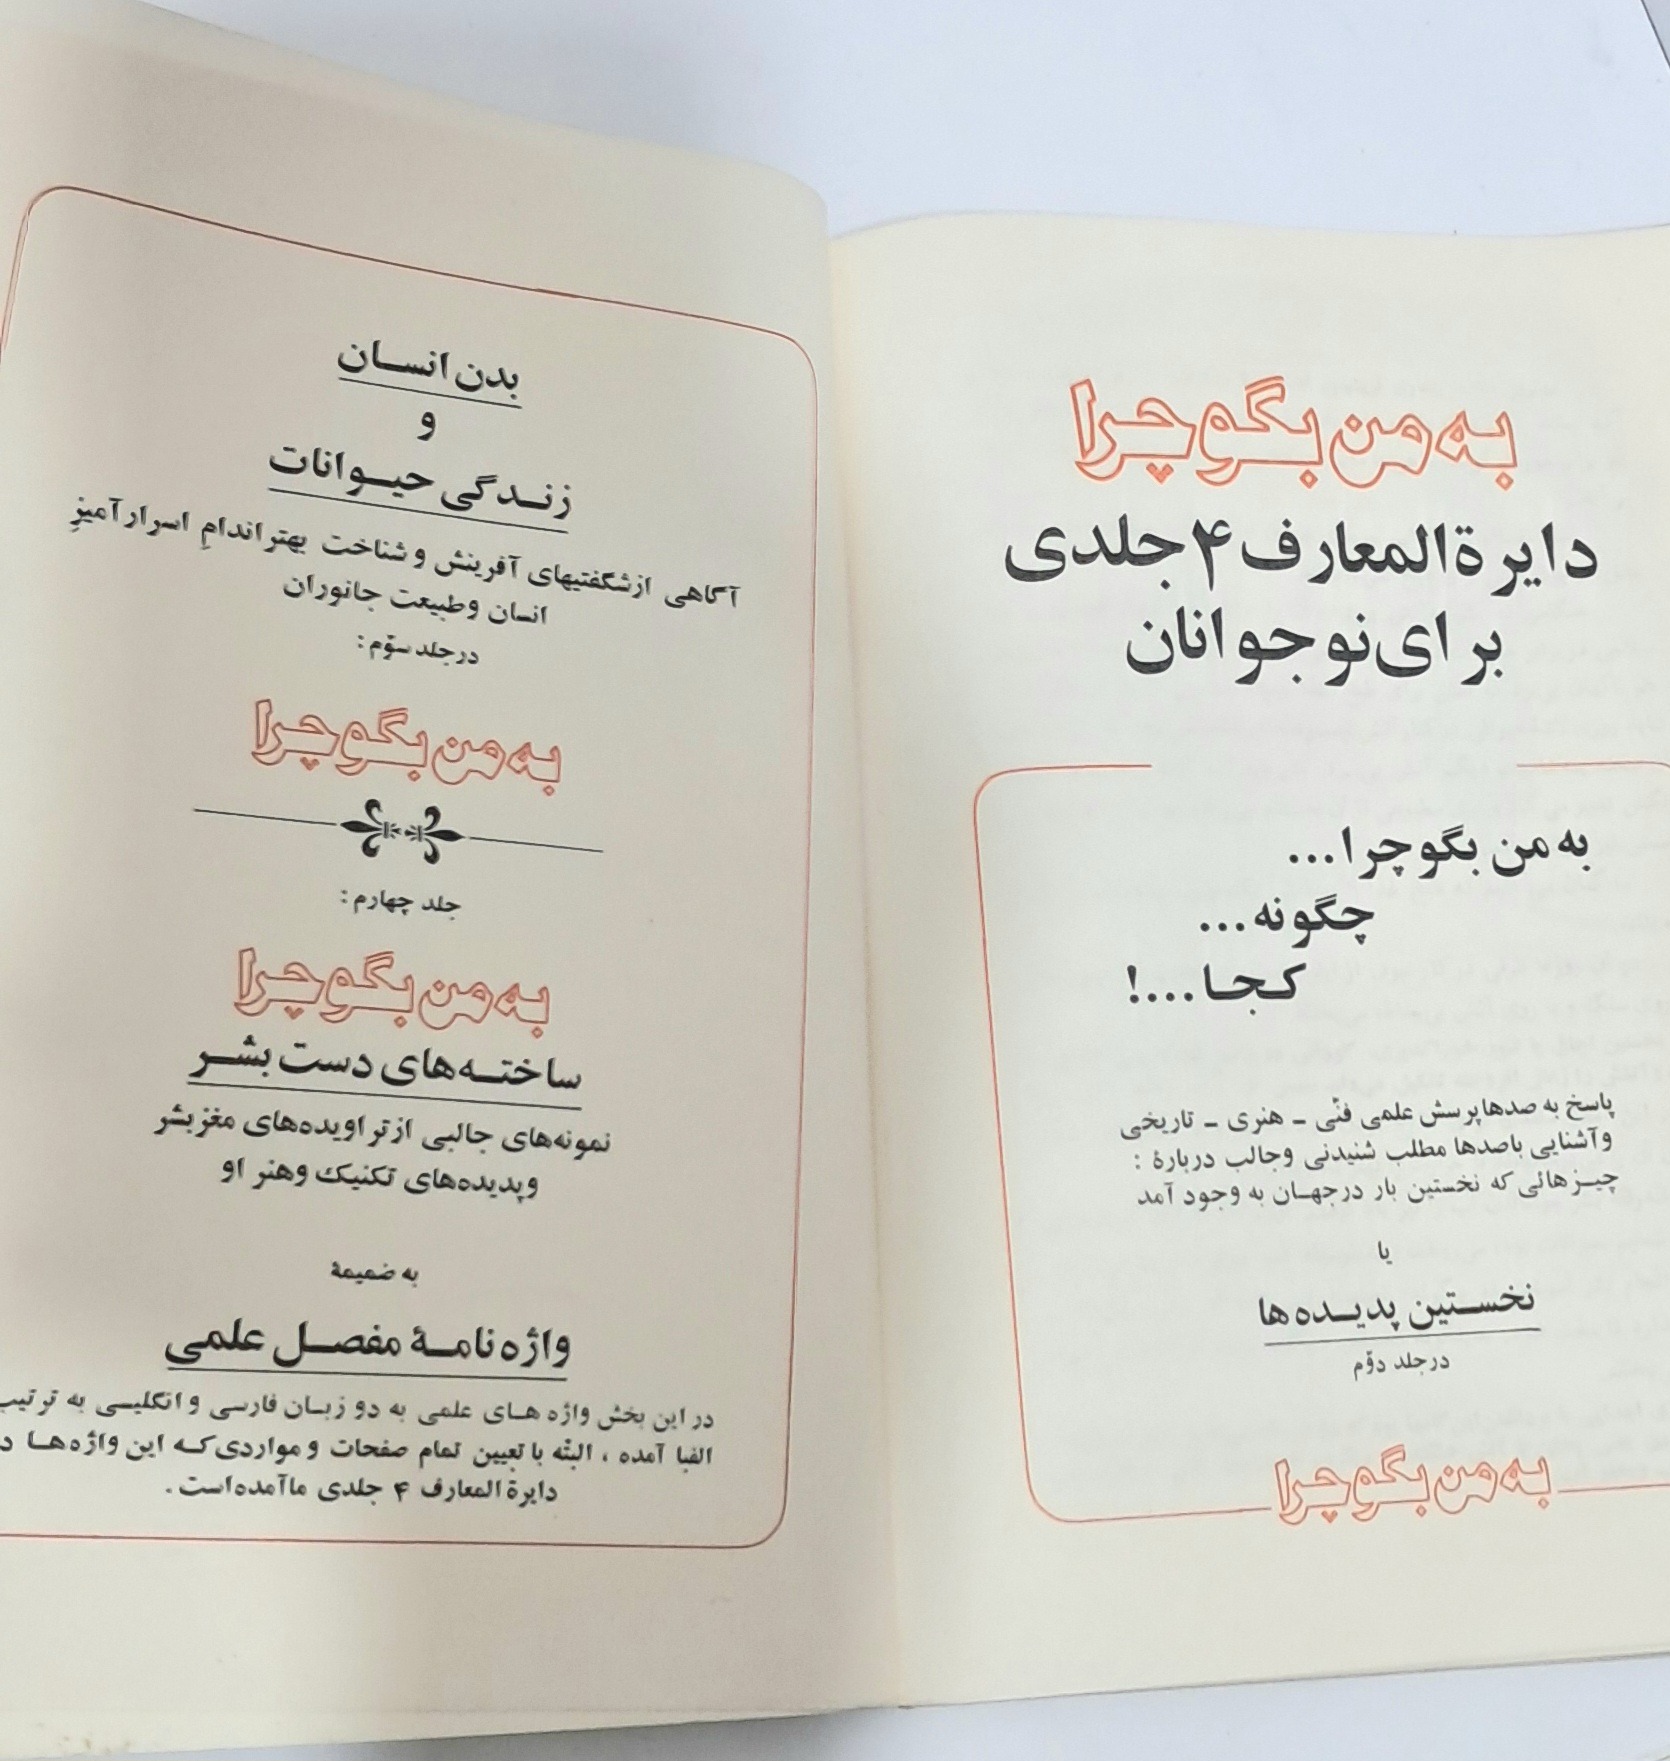 به من بگو چرا
دایرة المعارف ۴ جلدی
برای نوجوانان
به من بگو چرا...
چگونه...
کجا...!
پاسخ به صدها پرسش علمی فنّی - هنری - تاریخی
و آشنایی با صدها مطلب شنیدنی و جالب دربارهٔ :
چیزهائی که نخستین بار در جهان به وجود آمد
یا
نخستین پدیده ها
در جلد دوّم
به من بگو چرا
بدن انسان
و
زندگی حیوانات
آگاهی از شگفتیهای آفرینش و شناخت بهتر اندامِ اسرار آمیزِ
انسان و طبیعت جانوران
در جلد سوّم :
به من بگو چرا
جلد چهارم :
به من بگو چرا
ساخته های دست بشر
نمونه های جالبی از تراویده های مغز بشر
و پدیده های تکنیک و هنر او
به ضمیمهٔ
واژه نامهٔ مفصل علمی
در این بخش واژه های علمی به دو زبان فارسی و انگلیسی به ترتیب
الفبا آمده ، البتّه با تعیین تمام صفحات و مواردی که این واژه ها
دایرة المعارف ۴ جلدی ما آمده است .